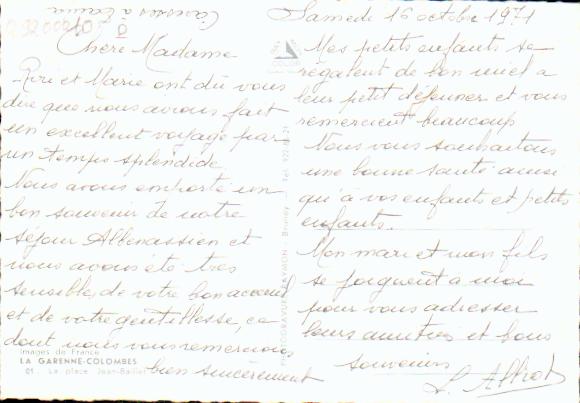 Samedi 16 octobre 1971
Chère Madame
Riri et Marie ont dû vous
dire que nous avons fait
un excellent voyage par
un temps splendide
Nous avons emporté un
bon souvenir de notre
séjour Albenassien et
nous avons été très
sensibles de votre bon accueil
et de votre gentillesse, ce
dont nous vous remercions
bien sincèrement
Mes petits enfants se
régalent de bon miel a
leur petit déjeuner et vous
remercient beaucoup
Nous vous souhaitons
une bonne santé ainsi
qu'à vos enfants et petits
enfants.
Mon mari et mon fils
se joignent a moi
pour vous adresser
leurs amitiés et bons
souvenirs
Images de France
LA GARENNE-COLOMBES
01 - La place Jean-Baillet